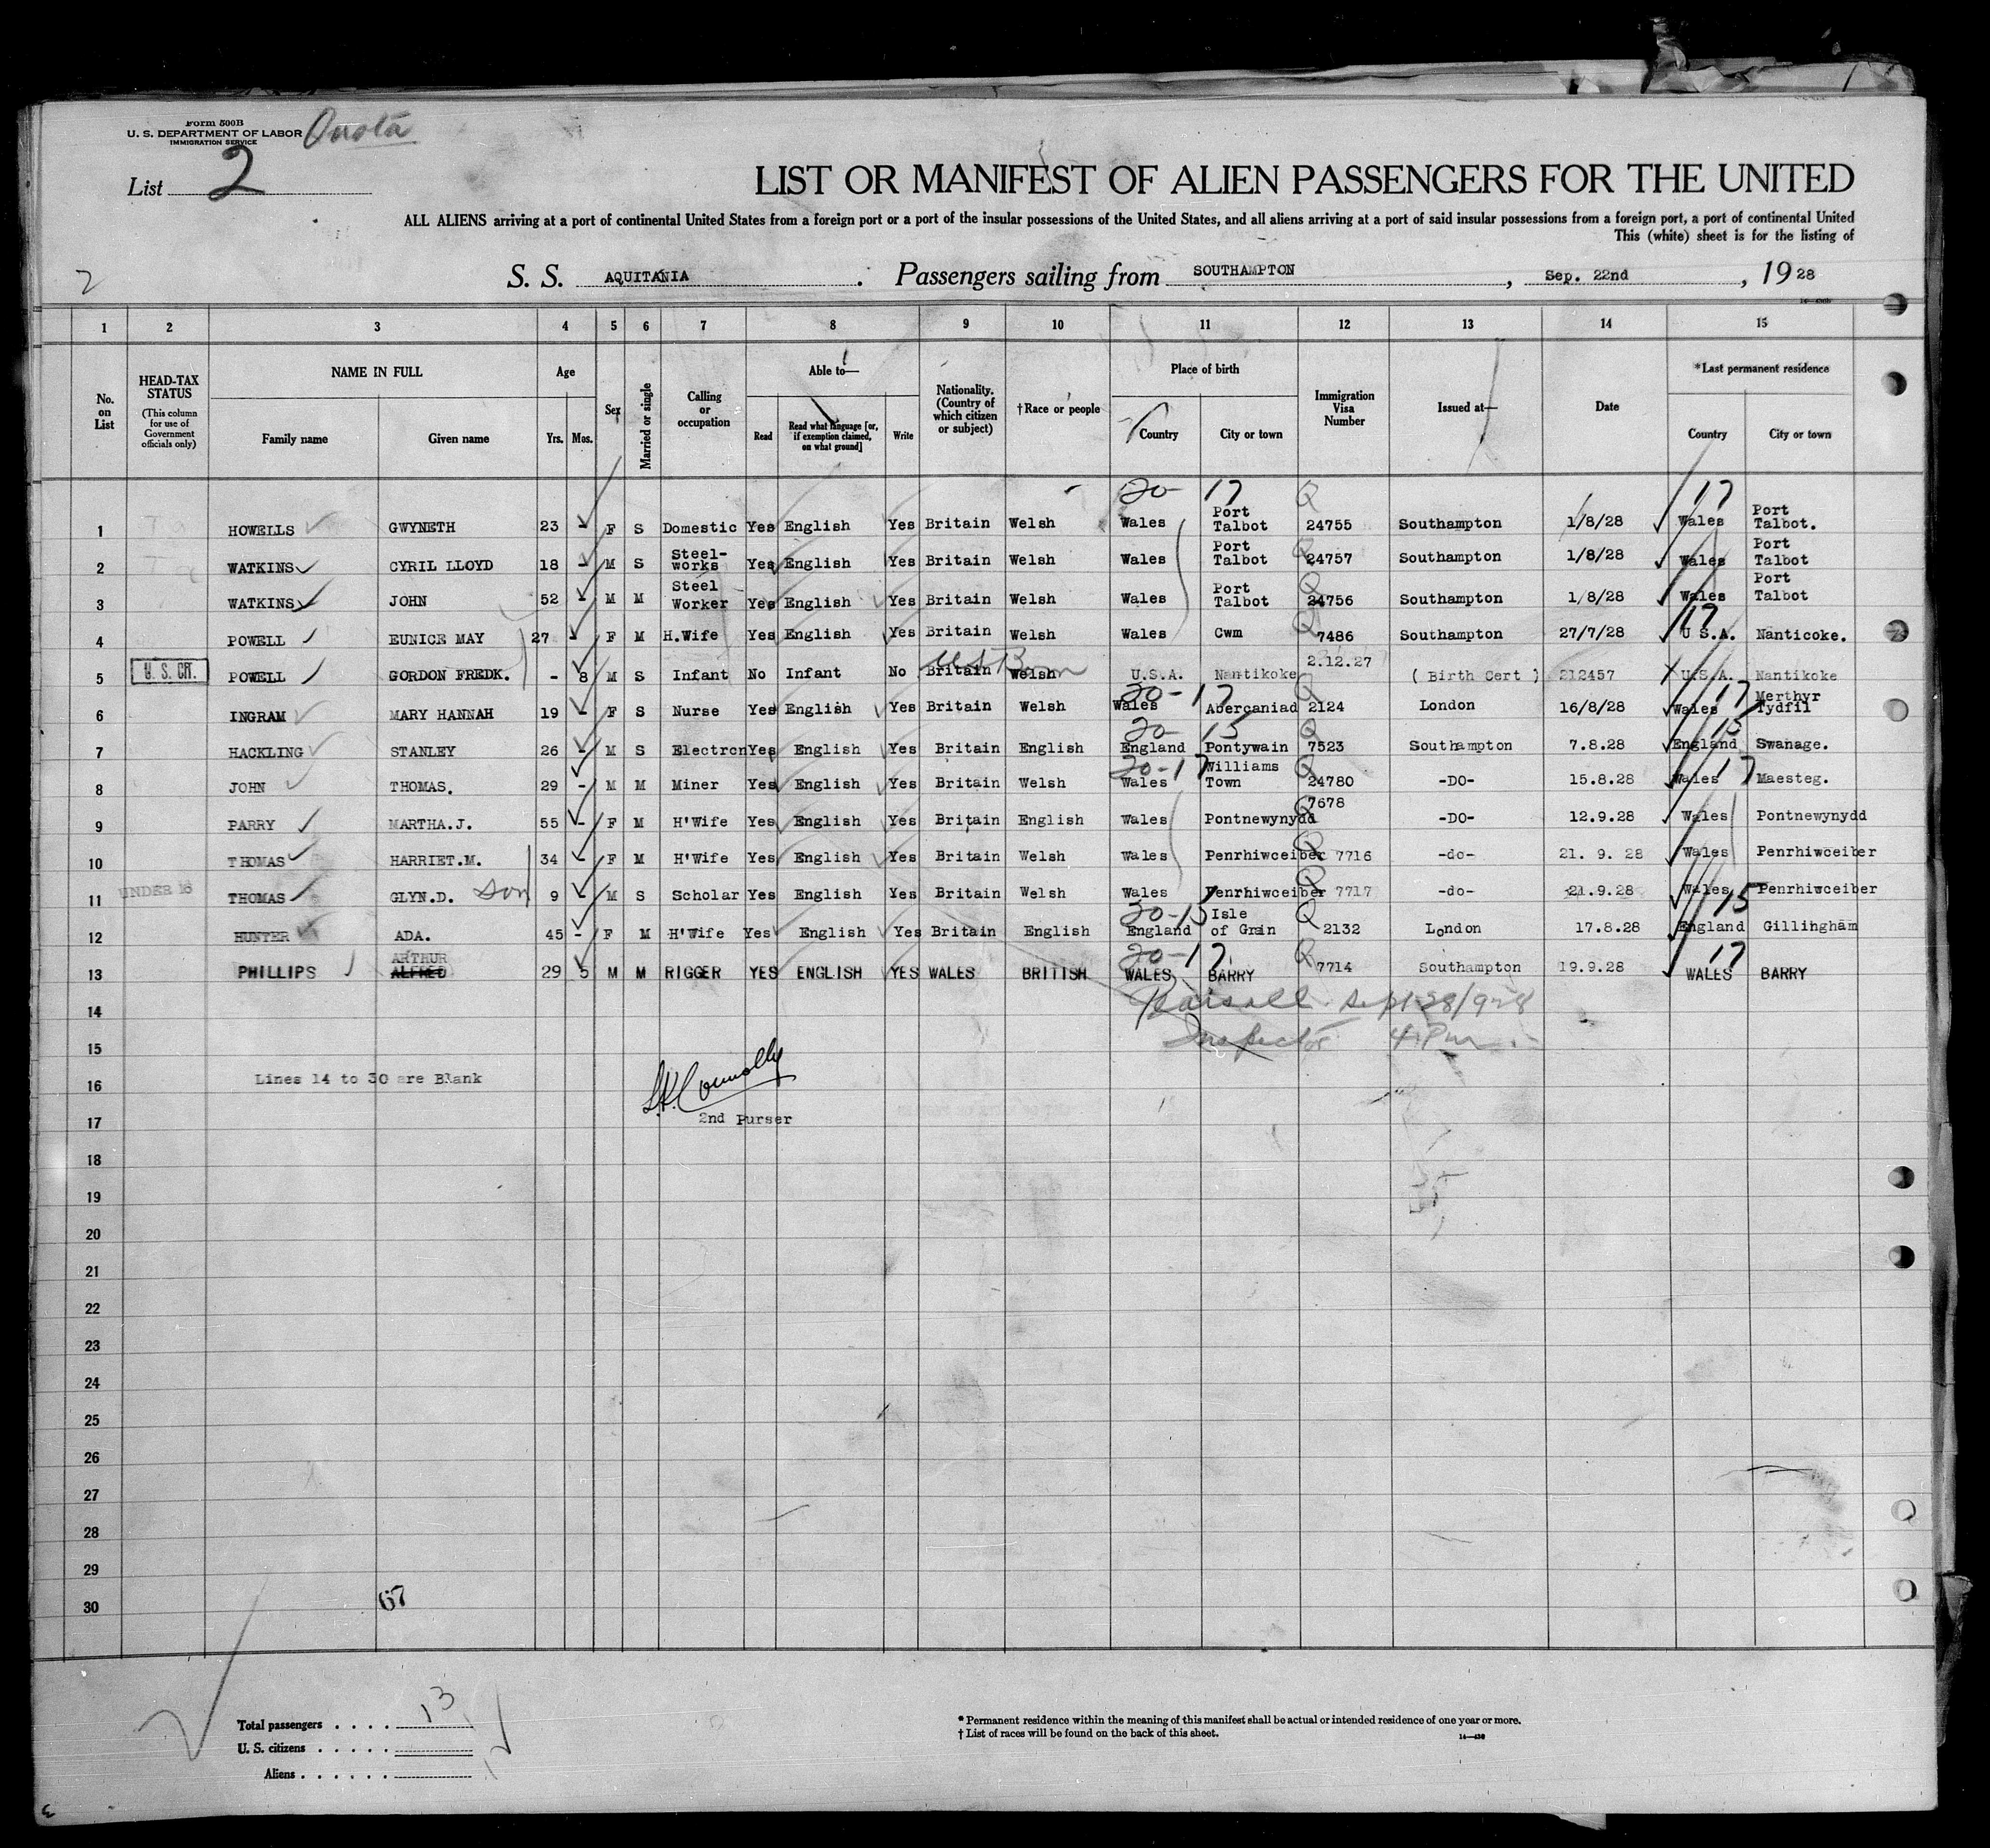 Form 500B
U. S. DEPARTMENT OF LABOR
IMMIGRATION SERVICE
List 2
LIST OR MANIFEST OF ALIEN PASSENGERS FOR THE UNITED
ALL ALIENS arriving at a port of continental United States from a foreign port or a port of the insular possessions of the United States, and all aliens arriving at a port of said insular possessions from a foreign port, a port of continental United
This (white) sheet is for the listing of
2
S. S. AQUITANIA. Passengers sailing from SOUTHAMPTON, Sep. 22nd, 1928
1 2 3 4 5 6 7 8 9 10 11 12 13 14 15
No. on List
HEAD-TAX STATUS (This column for use of Government officials only)
NAME IN FULL
Family name Given name
Age
Yrs. Mos.
Sex
Married or single
Calling or occupation
Able to—
Read Read what language [or, if exemption claimed, on what ground] Write
Nationality. (Country of which citizen or subject)
†Race or people
Place of birth
Country City or town
Immigration Visa Number
Issued at—
Date
*Last permanent residence
Country City or town
20- 17 Q 17
1 HOWELLS GWYNETH 23 - F S Domestic Yes English Yes Britain Welsh Wales Port Talbot 24755 Southampton 1/8/28 Wales Port Talbot.
2 WATKINS CYRIL LLOYD 18 - M S Steel-works Yes English Yes Britain Welsh Wales Port Talbot Q 24757 Southampton 1/8/28 Wales Port Talbot
3 WATKINS JOHN 52 - M M Steel Worker Yes English Yes Britain Welsh Wales Port Talbot Q 24756 Southampton 1/8/28 Wales Port Talbot
4 POWELL EUNICE MAY 27 - F M H.Wife Yes English Yes Britain Welsh Wales Cwm Q 7486 Southampton 27/7/28 17 U S.A. Nanticoke.
5 U. S. CIT. POWELL GORDON FREDK. - 8 M S Infant No Infant No Britain US Born Welsh U.S.A. Nantikoke 2.12.27 ( Birth Cert ) 212457 U.S.A. Nantikoke
6 INGRAM MARY HANNAH 19 - F S Nurse Yes English Yes Britain Welsh 20-17 Wales Abercaniad Q 2124 London 16/8/28 Wales 17 Merthyr Tydfil
7 HACKLING STANLEY 26 - M S Electrcn Yes English Yes Britain English 20- 15 England Pontywain Q 7523 Southampton 7.8.28 England 15 Swanage.
8 JOHN THOMAS. 29 - M M Miner Yes English Yes Britain Welsh 20-17 Wales Williams Town Q 24780 -DO- 15.8.28 Wales 17 Maesteg.
9 PARRY MARTHA.J. 55 - F M H'Wife Yes English Yes Britain English Wales Pontnewynydd Q 7678 -DO- 12.9.28 Wales Pontnewynydd
10 THOMAS HARRIET.M. 34 - F M H'Wife Yes English Yes Britain Welsh Wales Penrhiwceiber Q 7716 -do- 21. 9. 28 Wales Penrhiwceiber
11 UNDER 16 THOMAS GLYN.D. Son 9 - M S Scholar Yes English Yes Britain Welsh Wales Penrhiwceiber Q 7717 -do- 21.9.28 Wales Penrhiwceiber
12 HUNTER ADA. 45 - F M H'Wife Yes English Yes Britain English 20-15 England Isle of Grain Q 2132 London 17.8.28 15 England Gillingham
13 PHILLIPS ARTHUR ALFRED 29 5 M M RIGGER YES ENGLISH YES WALES BRITISH 20-17 WALES BARRY Q 7714 Southampton 19.9.28 17 WALES BARRY
14 Sept 28/928
15 Inspector 4 Pm
16 Lines 14 to 30 are Blank
17 2nd Purser
18
19
20
21
22
23
24
25
26
27
28
29
30 67
Total passengers . . . . 13
U. S. citizens . . . . .
Aliens . . . . . .
* Permanent residence within the meaning of this manifest shall be actual or intended residence of one year or more.
† List of races will be found on the back of this sheet.